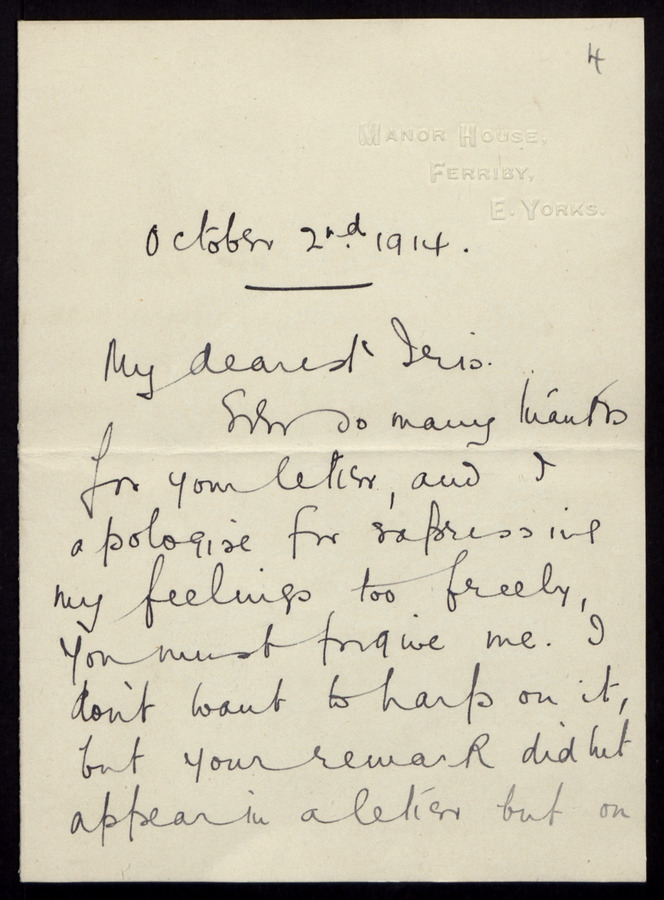 4
MANOR HOUSE,
FERRIBY,
E. YORKS.
October 2nd. 1914.
My dearest Iris.
Ever so many thanks
for your letter, and I
apologise for expressing
my feelings too freely,
You must forgive me. I
don't want to harp on it,
but your remark did not
appear in a letter but on